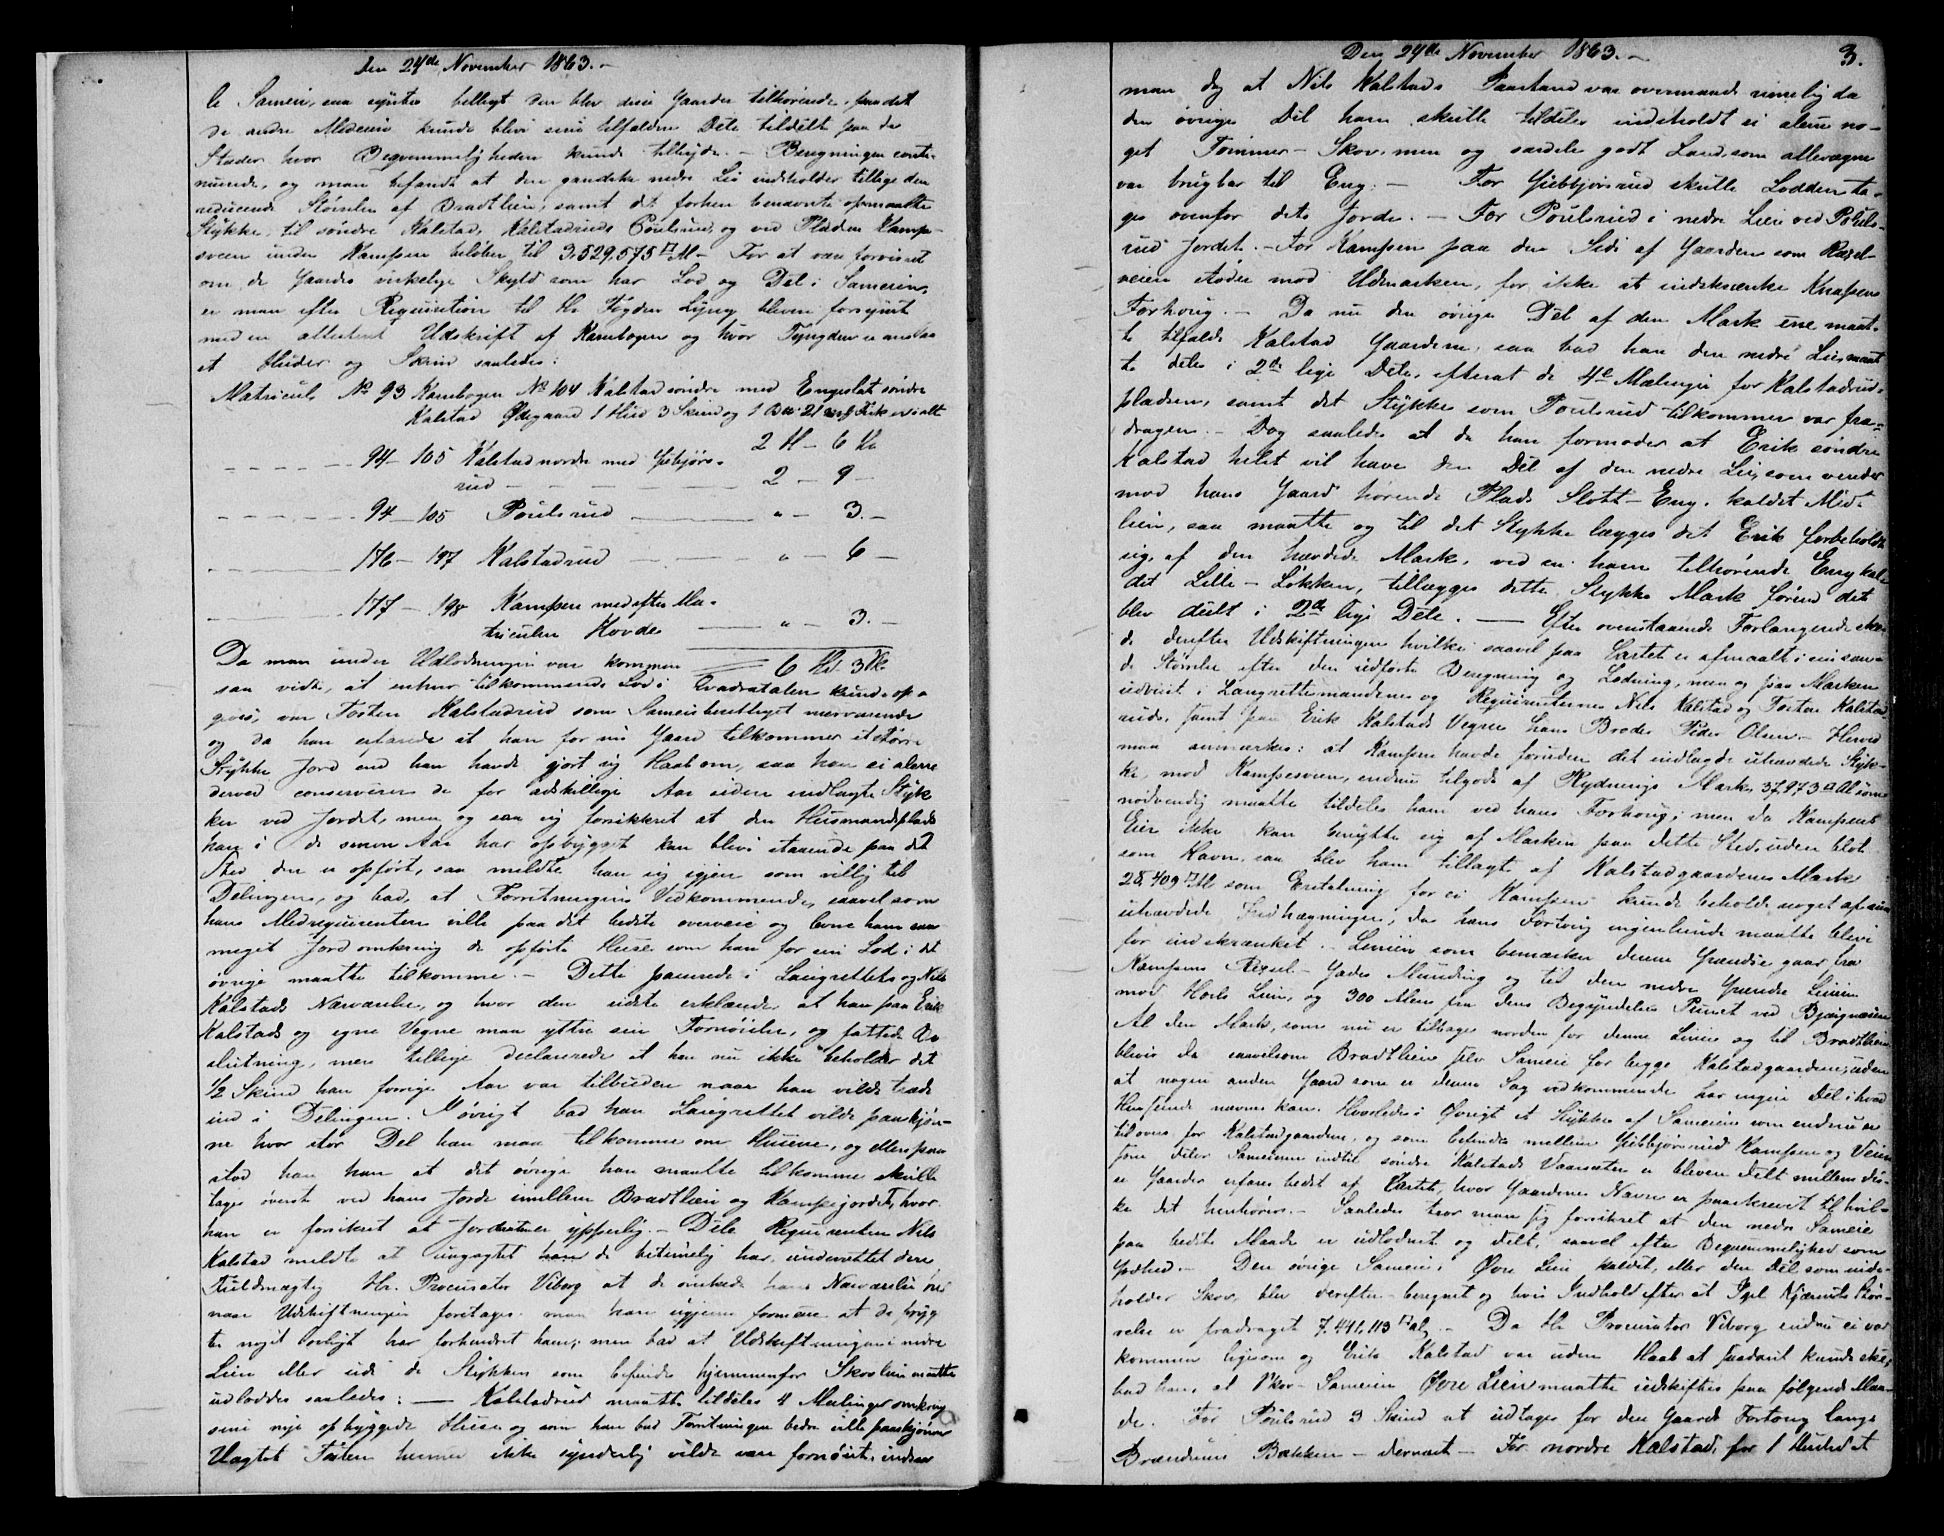 Den 24de November 1863.-
le Sameie, saa syntes billigt den blev disse Gaarder tilhørende, paa det
de andre Medeiere kunde blive sine tilfaldne Dele tildelt paa de
Stæder hvor Beqvemmeligheden kunde tilbyde. - Beregningen conti-
nuerede, og man befandt at den gandske nedre Lie indholder tillige den
reducerede Størrelse af Bradtlien, samt det forhen benævnte opmaalte
Stykke til søndre Kalstad, Kalstadruds Poulsrud, og ved Pladsen Kamp-
sveen under Kampen beløber til 3,529,575 □ Al - For at være forvisset
om de Gaardes virkelige Skyld som har Lod og Del i Sameien,
er man efter Requisition til Hr Fogden Lyng bleven forsynet
med en attesteret Udskrift af Kambogen og hvor Tyngden er anslaa-
et Huder og Skind saaledes:
Matricul No 93 Kambogen No 104 Kalstad søndre med Engeslet søndre
Kalstad Ødegaard 1 Hud 3 Skind og 1 er i alt
2 H - 6 Sk
94 - 105 Kalstad nordre med Gibbjørs-
rud - - - 2 - 9 -
94 - 105 Poulsrud " - 3. -
176 - 197 Kalstadrud - " - 6 -
177 - 198 Kampen med efter Ma-
triculen Hovde " - 3. -
6 Hd 3 Sk.
Da man under Udlodningen var kommen
saa vidt, at enhver tilkommende Lod i Qvadratalen kunde op-
gives, var Tosten Kalstadrud som Sameieberettiget nærværende
og da han erfarede at han for sin Gaard tilkommer et større
Stykke Jord end han havde gjort sig Haab om, saa han ei alene
derved conserverer de for adskillige Aar siden indtagte Styk
ker ved Jordet, men og saa sig forsikkret at den Husmandsplads
han i de senere Aar har opbygget kan blive staaende paa det
Sted den er opført, saa meldte han sig igjen som villig til
Delingen, og bad, at Forretningens Vedkommende, saavel som
hans Medrequirenter ville paa det bedste overveie og levne ham saa
meget Jord omkring de opførte Huse som han for sin Lod i det
øvrige maatte tilkomme. - Dette passerede i Laugrettets og Nils
Kalstads Nærværelse, og hvor den sidste erklærede at han paa Erik
Kalstads og egne Vegne maa yttre sin Fornøielse, og fattede Be
slutning, men tillige declarerede at han nu ikke beholder det
1/2 Skind han forrige Aar var tilbuden naar han vilde træde
ind i Delingen. I øvrigt bad han Laugrettet vilde paaskjøn-
ne hvor stor Del han maa tilkomme om Husene, og ellers paa
stod han at det øvrige han maatte tilkomme skulle
tages øverst ved hans Jorde imellem Bradtlien og Kampejordet, hvor
han er forsikret at Jordarten er ypperlig. - Dels Requirenten Nils
Kalstad meldte at uagtet han de betimelig har underrettet dere
Fuldmægtig Hr. Procurator Viborg at de ønskede hans Nærværelse her
naar Udskiftningen foretages, maa han igjen formene at de
te noget ovligt har forhindret ham; men bad at Udskiftningen i nedre
Lien eller udi de Stykker som befindes hjemmenfor Skovlien maatte
udloddes saaledes: - Kalstadrud maatte tildeles 4 Mælinger omkring
sine nye opbyggede Huse og som han bad Forretningen bedre ville paaskjønne
Uagtet Tosten herover ikke synderlig vilde være fornøiet, indsaa
Den 24de November 1863. -
3.
man dog at Nils Kalstads Paastand var overmaade rimelig da
den øvrige Del ham skulle tildeles indeholdt ei alene no-
get Tømmer-Skov, men og særdeles godt Land, som allevægne
var brugbar til Eng. - For Gibbjørsrud skulle Lodden ta-
ges ovenfor dets Jorde. - For Poulsrud i nedre Lien ved Pouls-
rud Jordet. - For Kampen paa den Side af Gaarden som Ræsel-
veien støder mod Udmarken, for ikke at indskrænke Kampens
Forhoug. - Da nu den øvrige Del af den Mark ene maat-
te tilfalde Kalstad Gaardene, saa bad han den nedre Lie maat
te deles i 2de lige Dele, efterat de 4e Mælinger for Kalstadrud-
pladsen, samt det Stykke som Poulsrud tilkommer var fra-
dragen. - Dog saaledes at da han formoder at Erik søndre
Kalstad helst vil have den Del af den nedre Lie, som vender
mod hans Gaard hørende Plads Slott-Eng, kaldet Mid-
lien, saa maatte og til det Stykke lægges det Erik forbeholdt
sig, af den hævdede Mark, ved en ham tilhørende Eng kal-
det Lille-Løkken, tillægges dette Stykke Mark førend det
blev deelt i 2de lige Dele. - Efter ovenstaaende Forlangende skee-
de derefter Udskiftningen hvilke saavel paa Cartet er afmaalt i sin san-
de Størrelse efter den udførte Beregning og Lodning, men og paa Marken
udviist i Laugrettesmændenes og Requirenternes Nils Kalstad og Tosten Kalstad
ruds, samt paa Erik Kalstads Vegne hans Broder Peder Olsen. - Herved
maa anmærkes: at Kampen havde foruden det indtagde uhævdede Styk-
ke, mod Kampesveen, endnu tilgode af Rydnings Mark 37,973 □ Al som
nødvendig maatte tildeles ham ved hans Forhoug; men da Kampens
Eier ikke kan benytte sig af Marken paa dette Sted, uden blot
som Havn, saa blev ham tillagt af Kalstadgaardenes Mark
28,409 □ Al som Erstatning for ei Kampen kunde beholde noget af sine
uhævdede Indhægninger, da hans Fortoug ingenlunde maatte blive
for indskrænket. - Linien som bemærker denne Grændse gaar fra
Kampens Ræsel-Gades Munding og til den nedre Grændse Linien
mod Hovls Lien, og 300 Alen fra dens Begyndelses Punct ved Bjørgneien
Al den Mark, som nu er tilbage norden for denne Linie og til Bradtlien
bliver da saavelsom Bradtlien selv Sameie for begge Kalstadgaardene, uden
at nogen anden Gaard som er denne Sag vedkommende har ingen Del i hvad
Henseende nævnes kan. Hvorledes i Øvrigt et Stykke af Sameien som endnu er
tilovers for Kalstadgaardene, og som befindes mellem Gibbjørsrud Kampen og Veien
som deler Sameierne indtil søndre Kalstads Vaarsæter er bleven delt mellem dis-
se Gaarder erfares bedst af Cartet, hvor Gaardenes Navne er paaskrevet til hvil-
ke det henhører. - Saaledes tror man sig forsikret at den nedre Sameie
paa bedste Maade er udloddet og delt, saavel efter Beqvemmelighed som
Godhed. - Den øvrige Sameie, Øvre Lien kaldet, eller den Del som inde-
holder Skov blev derefter beregnet og hvis Indhold efter at Igel Kjærnets Stør-
relse er fradraget 7,441,113 □ Al. - Da Hr Procurator Viborg endnu ei var
kommen ligesom og Eriks Kalstad var uden Haab at saadant kunde skee,
bad han, at Skov-Sameien Øvre Lien maatte udskiftes paa følgende Maa-
de. For Poulsrud 3 Skind at udtages for den Gaards Fortoug langs
Brændnins Bækken - dernæst - For nordre Kalstad, for 1 Hud at